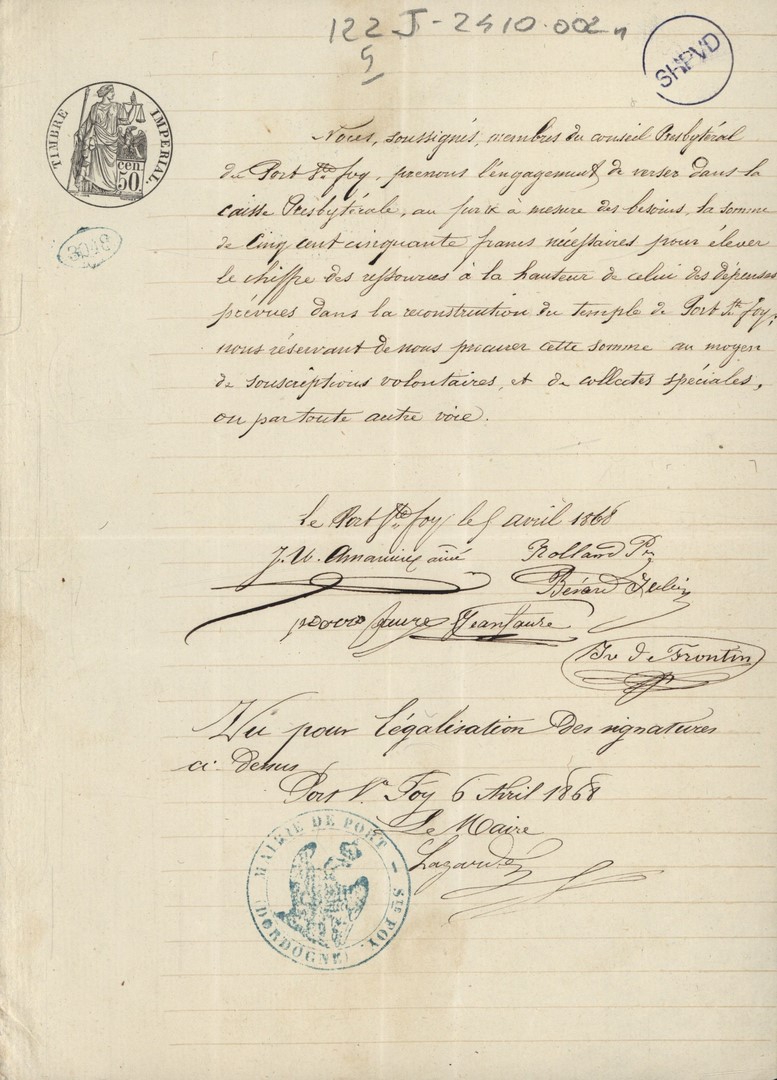 122 J - 2410.002
5
SHPVD
TIMBRE IMPERIAL.
cen
50
3048
Nous, soussignés, membres du conseil Presbytéral
de Port Ste foy, prenons l'engagement de verser dans la
caisse Presbytérale, au fur & à mesure des besoins, la somme
de Cinq cent cinquante francs nécessaires pour élever
le chiffre des ressources à la hauteur de celui des dépenses
prévues dans la reconstruction du temple de Port Ste foy,
nous réservant de nous procurer cette somme au moyen
de souscriptions volontaires, et de collectes spéciales,
ou par toute autre voie.
Le Port Ste foy le 5 avril 1868
J. U. ainé Rolland Pr
Bérard
faure Jean faure
Frontin
Vu pour légalisation des signatures
ci dessus
Port Ste Foy 6 Avril 1868
Le Maire
MAIRIE DE PORT - STE FOY.
(DORDOGNE)